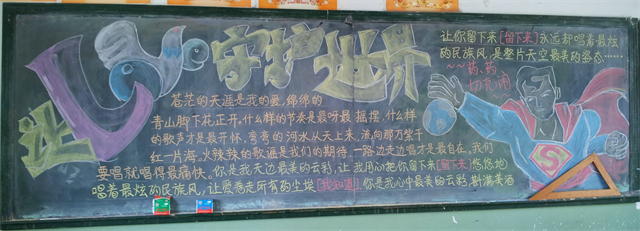 让心守护世界
苍茫的天涯是我的爱,绵绵的
青山脚下花正开,什么样的节奏是最呀最摇摆,什么样
的歌声才是最开怀,弯弯的河水从天上来,流向那万紫千
红一片海,火辣辣的歌谣是我们的期待,一路边走边唱才是最自在,我们
要唱就唱得最痛快,你是我天边最美的云彩,让我用心把你留下来[留下来]悠悠地
唱着最炫的民族风,让爱卷走所有的尘埃[我知道]你是我心中最美的云彩,斟满美酒
让你留下来[留下来]永远都唱着最炫
的民族风,是整片天空最美的姿态……